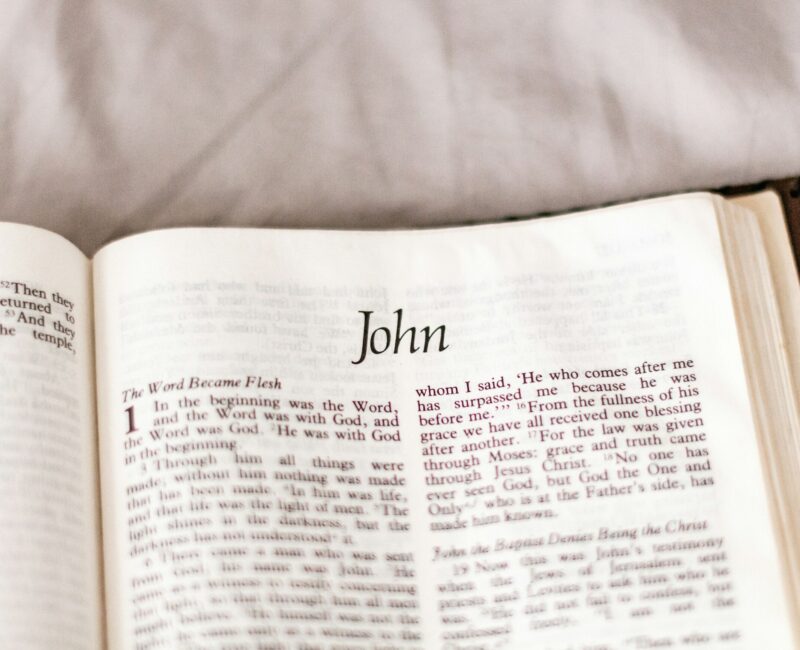 52Then they
eturned to
53And they
he temple,
John
The Word Became Flesh
1 In the beginning was the Word,
and the Word was with God, and
the Word was God. 2He was with God
in the beginning.
3 Through him all things were
made; without him nothing was made
that has been made. 4In him was life,
and that life was the light of men. 5The
light shines in the darkness, but the
darkness has not understood it.
6 There came a man who was sent
from God; his name was John. 7He
came as a witness to testify concerning
that light, so that through him all men
might believe. 8He himself was not the
light; he came only as a witness to the
whom I said, ‘He who comes after me
has surpassed me because he was
before me.’” 16From the fullness of his
grace we have all received one blessing
after another. 17For the law was given
through Moses; grace and truth came
through Jesus Christ. 18No one has
ever seen God, but God the One and
Only, who is at the Father’s side, has
made him known.
John the Baptist Denies Being the Christ
19 Now this was John’s testimony
when the Jews of Jerusalem sent
priests and Levites to ask him who he
was. 20He did not fail to confess, but
confessed freely, “I am not the